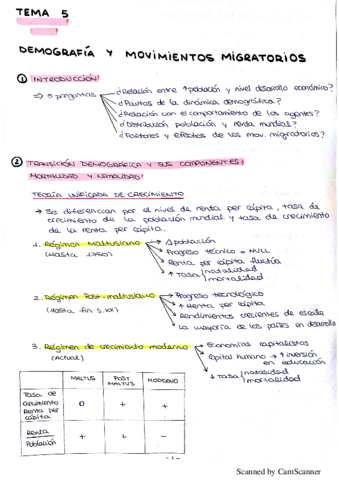 TEMA 5
DEMOGRAFÍA Y MOVIMIENTOS MIGRATORIOS
① INTRODUCCIÓN
⇒ 5 preguntas
¿Relación entre población y nivel desarrollo económico?
¿Pautas de la dinámica demográfica?
¿Relación con el comportamiento de los agentes?
¿Distribución población y renta mundial?
¿Factores y efectos de los mov. migratorios?
② TRANSICIÓN DEMOGRÁFICA Y SUS COMPONENTES:
MORTALIDAD Y NATALIDAD
TEORÍA UNIFICADA DE CRECIMIENTO
→ Se diferencian por el nivel de renta per cápita, tasa de
crecimiento de la población mundial y tasa de crecimiento
de la renta per cápita.
1. Régimen Maltusiano
(Hasta 1750)
Δ población
Progreso técnico = NULL
Renta per cápita
↑ Tasa natalidad
mortalidad
2. Régimen Post-maltusiano
(Hasta fin s.XX)
Progreso tecnológico
↑ Renta per cápita
Rendimientos crecientes de escala
La mayoría de los países en desarrollo
3. Régimen de crecimiento moderno
(Actual)
Economías capitalistas
Capital humano → ↑ inversión
en educación
↓ Tasa natalidad
mortalidad
MALTUS
POST MALTUS
MODERNO
Tasa de
crecimiento
Renta per
cápita
0 + +
Renta
Población
+ + -
- 1 -
Scanned by CamScanner